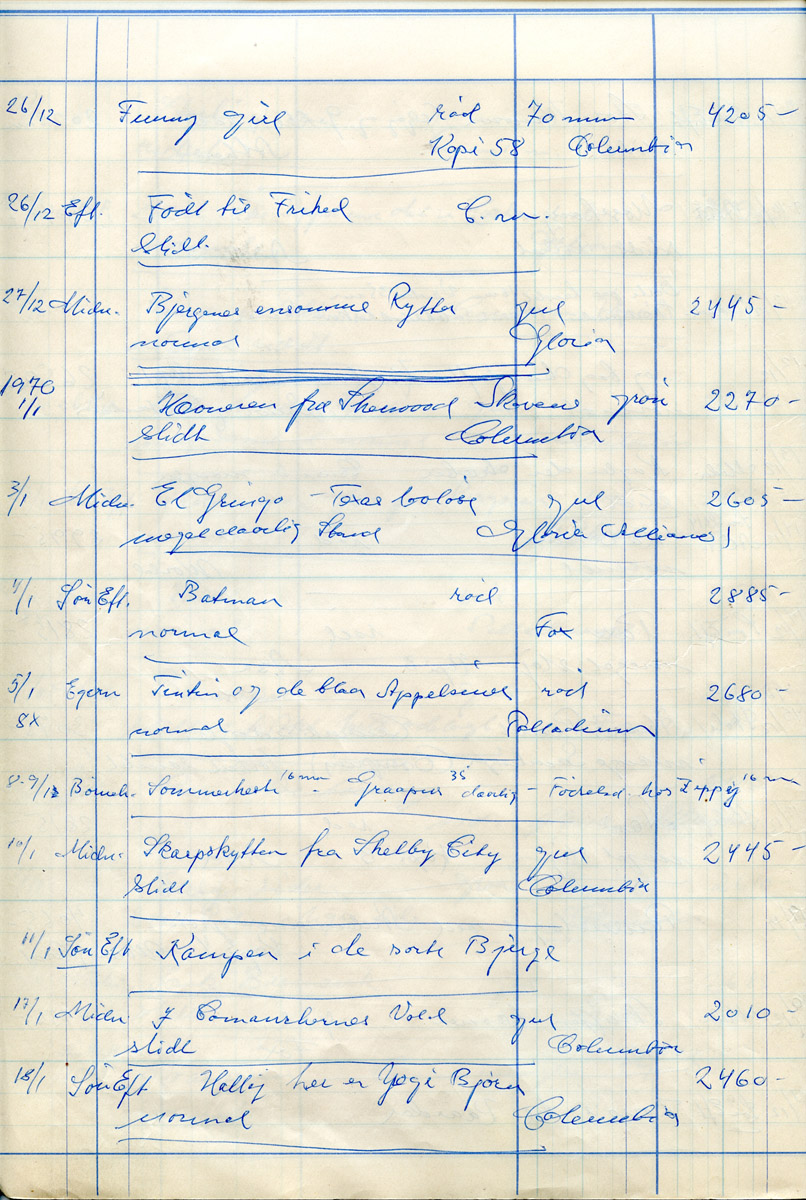 26/12 Funny girl rød 70 mm 4205-
Kopi 58 Columbia
26/12 Eft. Født til Frihed C. m.
Slidt.
27/12 Midn. Bjergenes ensomme Rytter gul 2445-
normal Gloria
1970
1/1 Hævneren fra Sherwood Skoven grøn 2270-
Slidt Columbia
3/1 Midn. El Gringo - Texas gul 2605-
meget daarlig Stand Gloria
4/1 Søn Eft. Batman rød 2885-
normal Fox
5/1 Egern Tintin og de blaa Appelsiner rød 2680-
8x normal Palladium
8-9/12 Børneh. Sommerhest 16 mm - Graapus 35 daarlig - Fødselsd. hos Zippy 16 mm
10/1 Midn. Skarpskytten fra Shelby City gul 2445-
Slidt Columbia
11/1 Søn Eft Kampen i de sorte Bjerge
17/1 Midn I Comanchernes Vold gul 2010-
slidt Columbia
18/1 Søn Eft Halløj her er Yogi Bjørn 2460-
normal Columbia